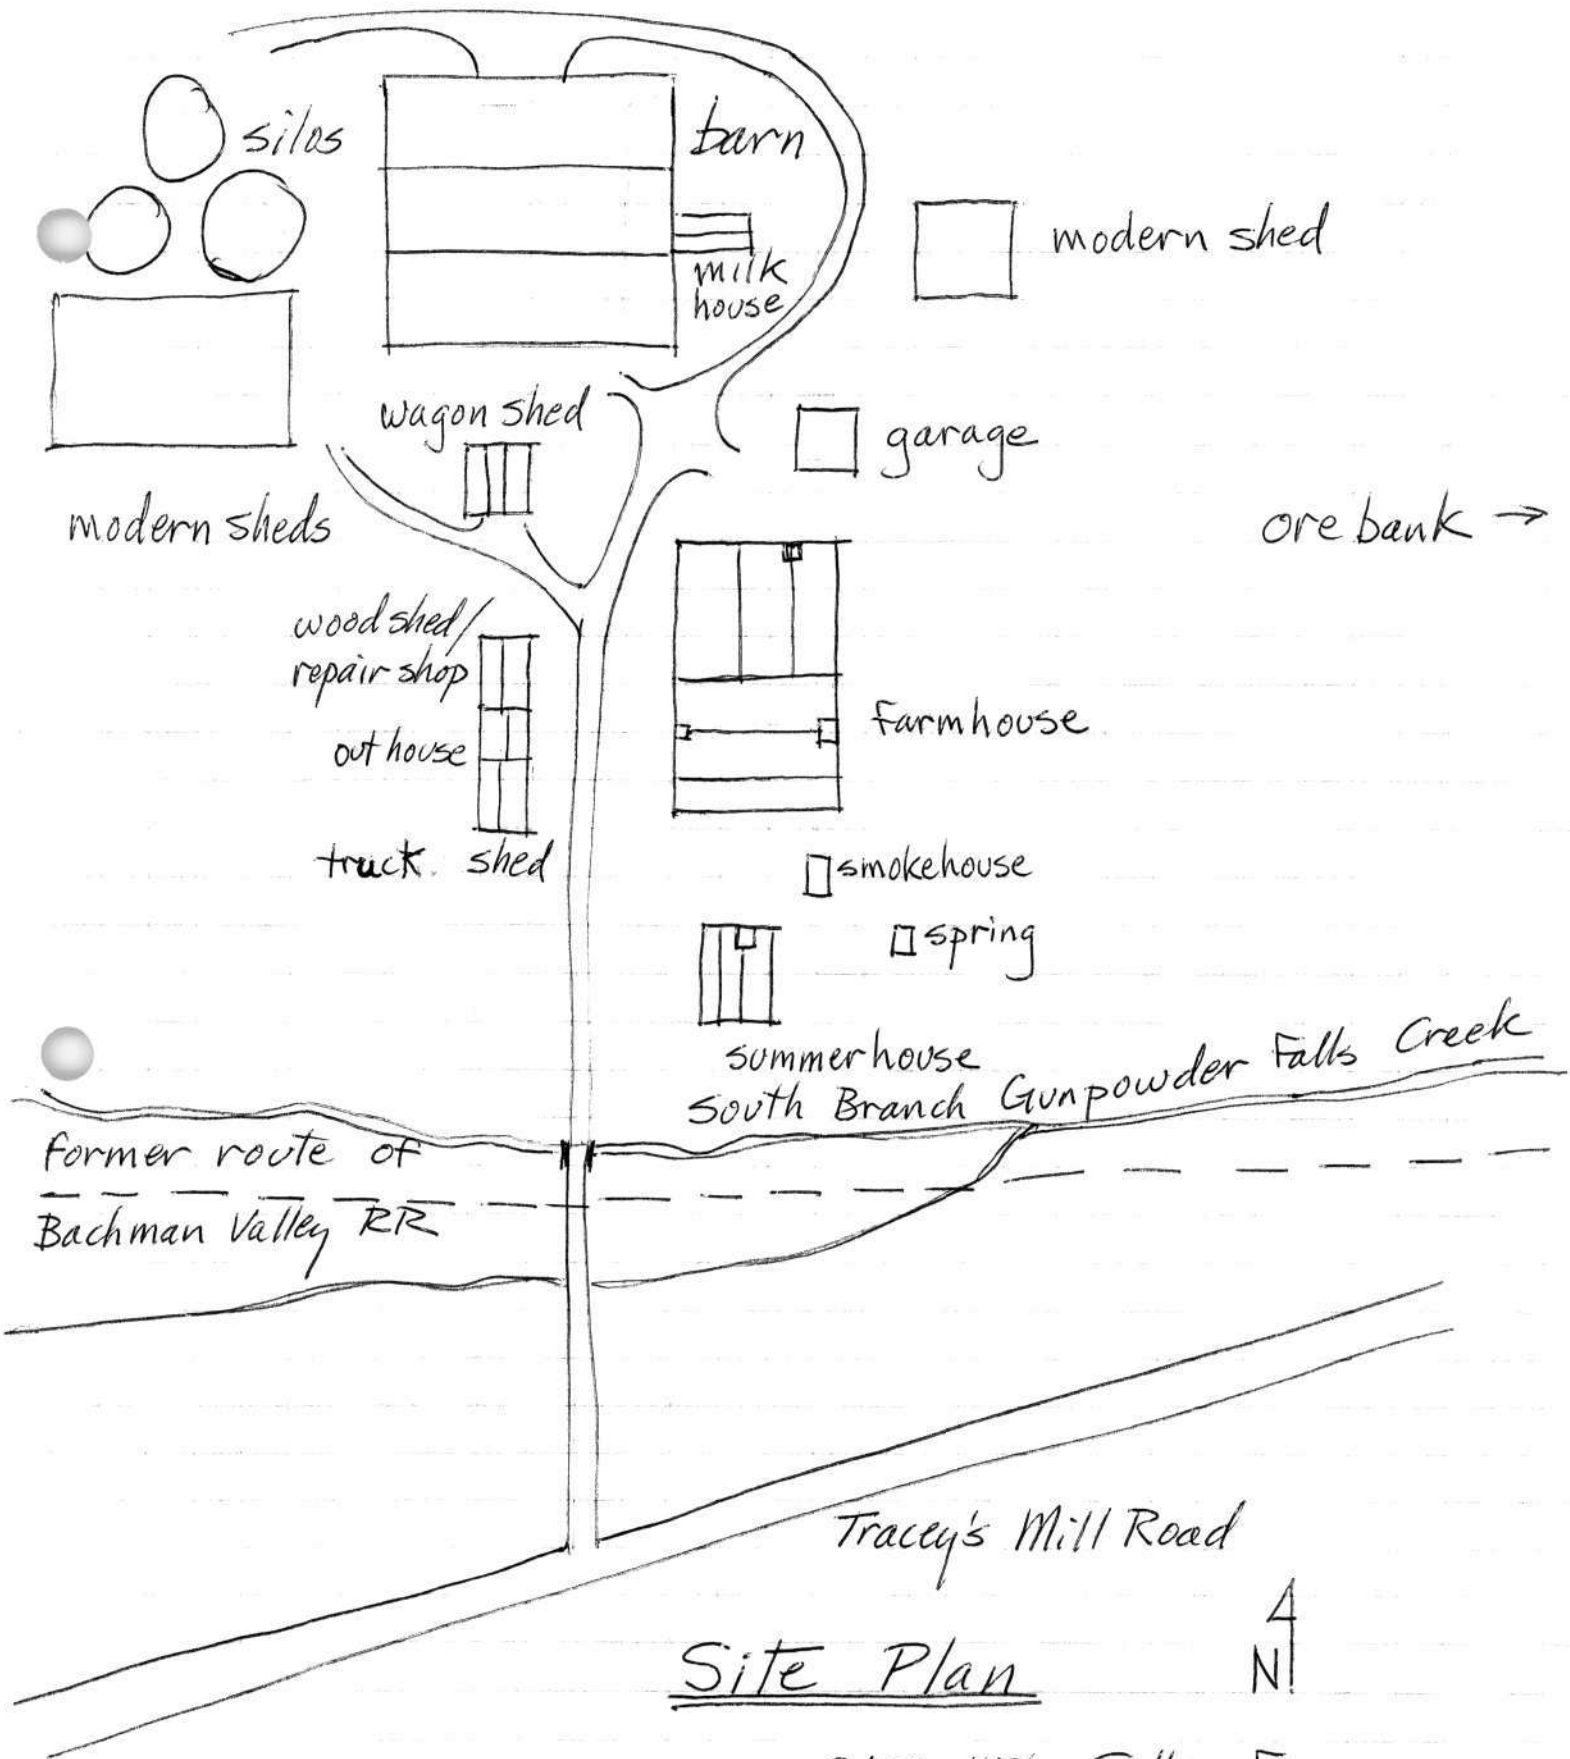 silos
barn
milk
house
modern shed
wagon shed
garage
modern sheds
ore bank →
wood shed/
repair shop
out house
farmhouse
truck shed
smokehouse
spring
summerhouse
South Branch Gunpowder Falls Creek
former route of
Bachman Valley RR
Tracey's Mill Road
Site Plan
N